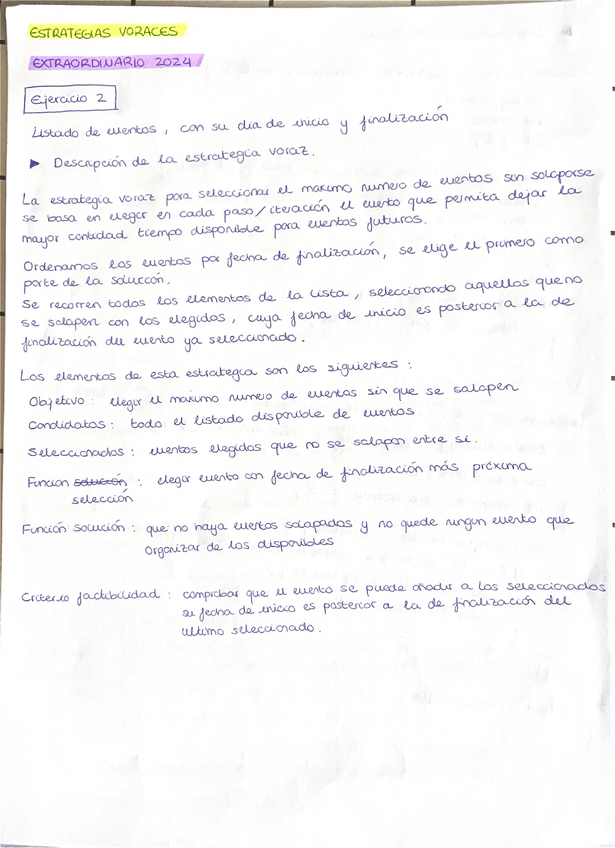 ESTRATEGIAS VORACES
EXTRAORDINARIO 2024
Ejercicio 2
Listado de eventos, con su dia de inicio y finalización
► Descripción de la estrategia voraz.
La estrategia voraz para seleccionar el maximo numero de eventos sin solaparse
se basa en elegir en cada paso/iteración el evento que permita dejar la
mayor cantidad tiempo disponible para eventos futuros.
Ordenamos los eventos por fecha de finalización, se elige el primero como
parte de la solución.
Se recorren todos los elementos de la lista, seleccionando aquellos que no
se solapen con los elegidos, cuya fecha de inicio es posterior a la de
finalización del evento ya seleccionado.
Los elementos de esta estrategia son los siguientes:
Objetivo: elegir el maximo numero de eventos sin que se solapen
Candidatos: todo el listado disponible de eventos
Seleccionados: eventos elegidos que no se solapan entre si.
Funcion solución: elegir evento con fecha de finalización más próxima
selección
Función solución: que no haya eventos solapados y no quede ningun evento que
organizar de los disponibles
Criterio factibilidad: comprobar que el evento se puede añadir a los seleccionados
su fecha de inicio es posterior a la de finalización del
ultimo seleccionado.